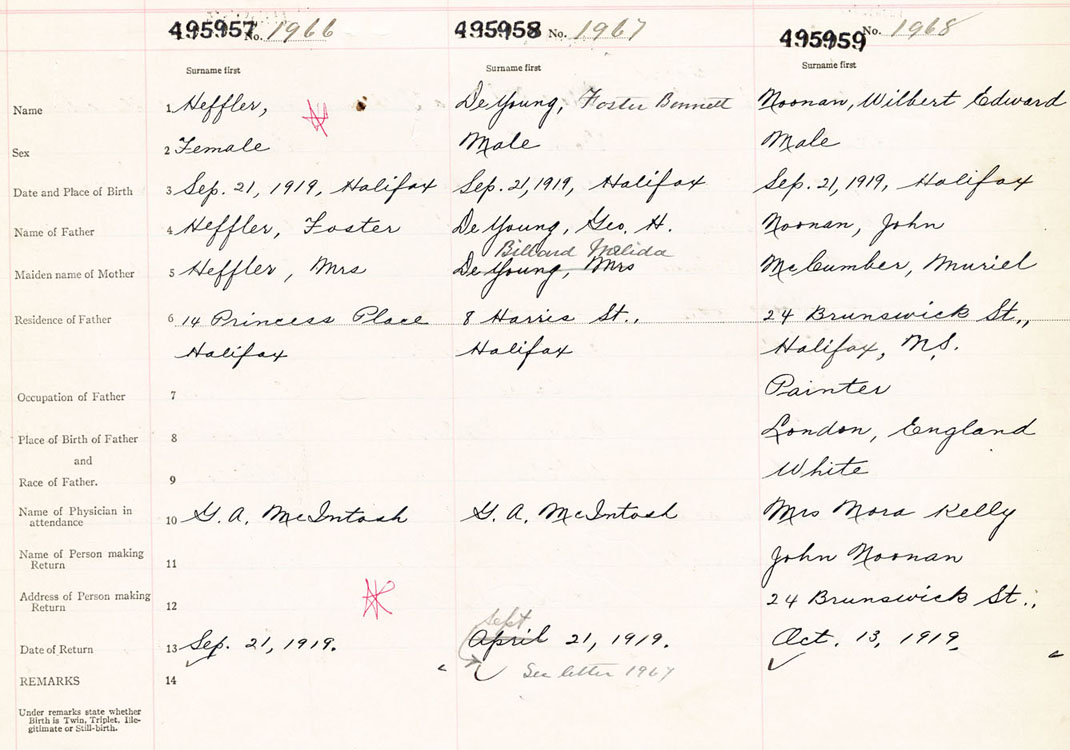 495957 No. 1966 495958 No. 1967 495959 No. 1968
Surname first Surname first Surname first
Name 1 Heffler, De Young, Foster Bennett Noonan, Wilbert Edward
Sex 2 Female Male Male
Date and Place of Birth 3 Sep. 21, 1919, Halifax Sep. 21, 1919, Halifax Sep. 21, 1919, Halifax
Name of Father 4 Heffler, Foster De Young, Geo. H. Noonan, John
Billard Melida
Maiden name of Mother 5 Heffler, Mrs De Young, Mrs McCumber, Muriel
Residence of Father 6 14 Princess Place 8 Harris St., 24 Brunswick St.,
Halifax Halifax Halifax, N.S.
Occupation of Father 7 Painter
Place of Birth of Father 8 London, England
and
Race of Father. 9 White
Name of Physician in attendance 10 G. A. McIntosh G. A. McIntosh Mrs Nora Kelly
Name of Person making Return 11 John Noonan
Address of Person making Return 12 24 Brunswick St.,
Sept
Date of Return 13 Sep. 21, 1919. April 21, 1919. Oct. 13, 1919.
REMARKS 14 See letter 1967
Under remarks state whether
Birth is Twin, Triplet, Ille-
gitimate or Still-birth.